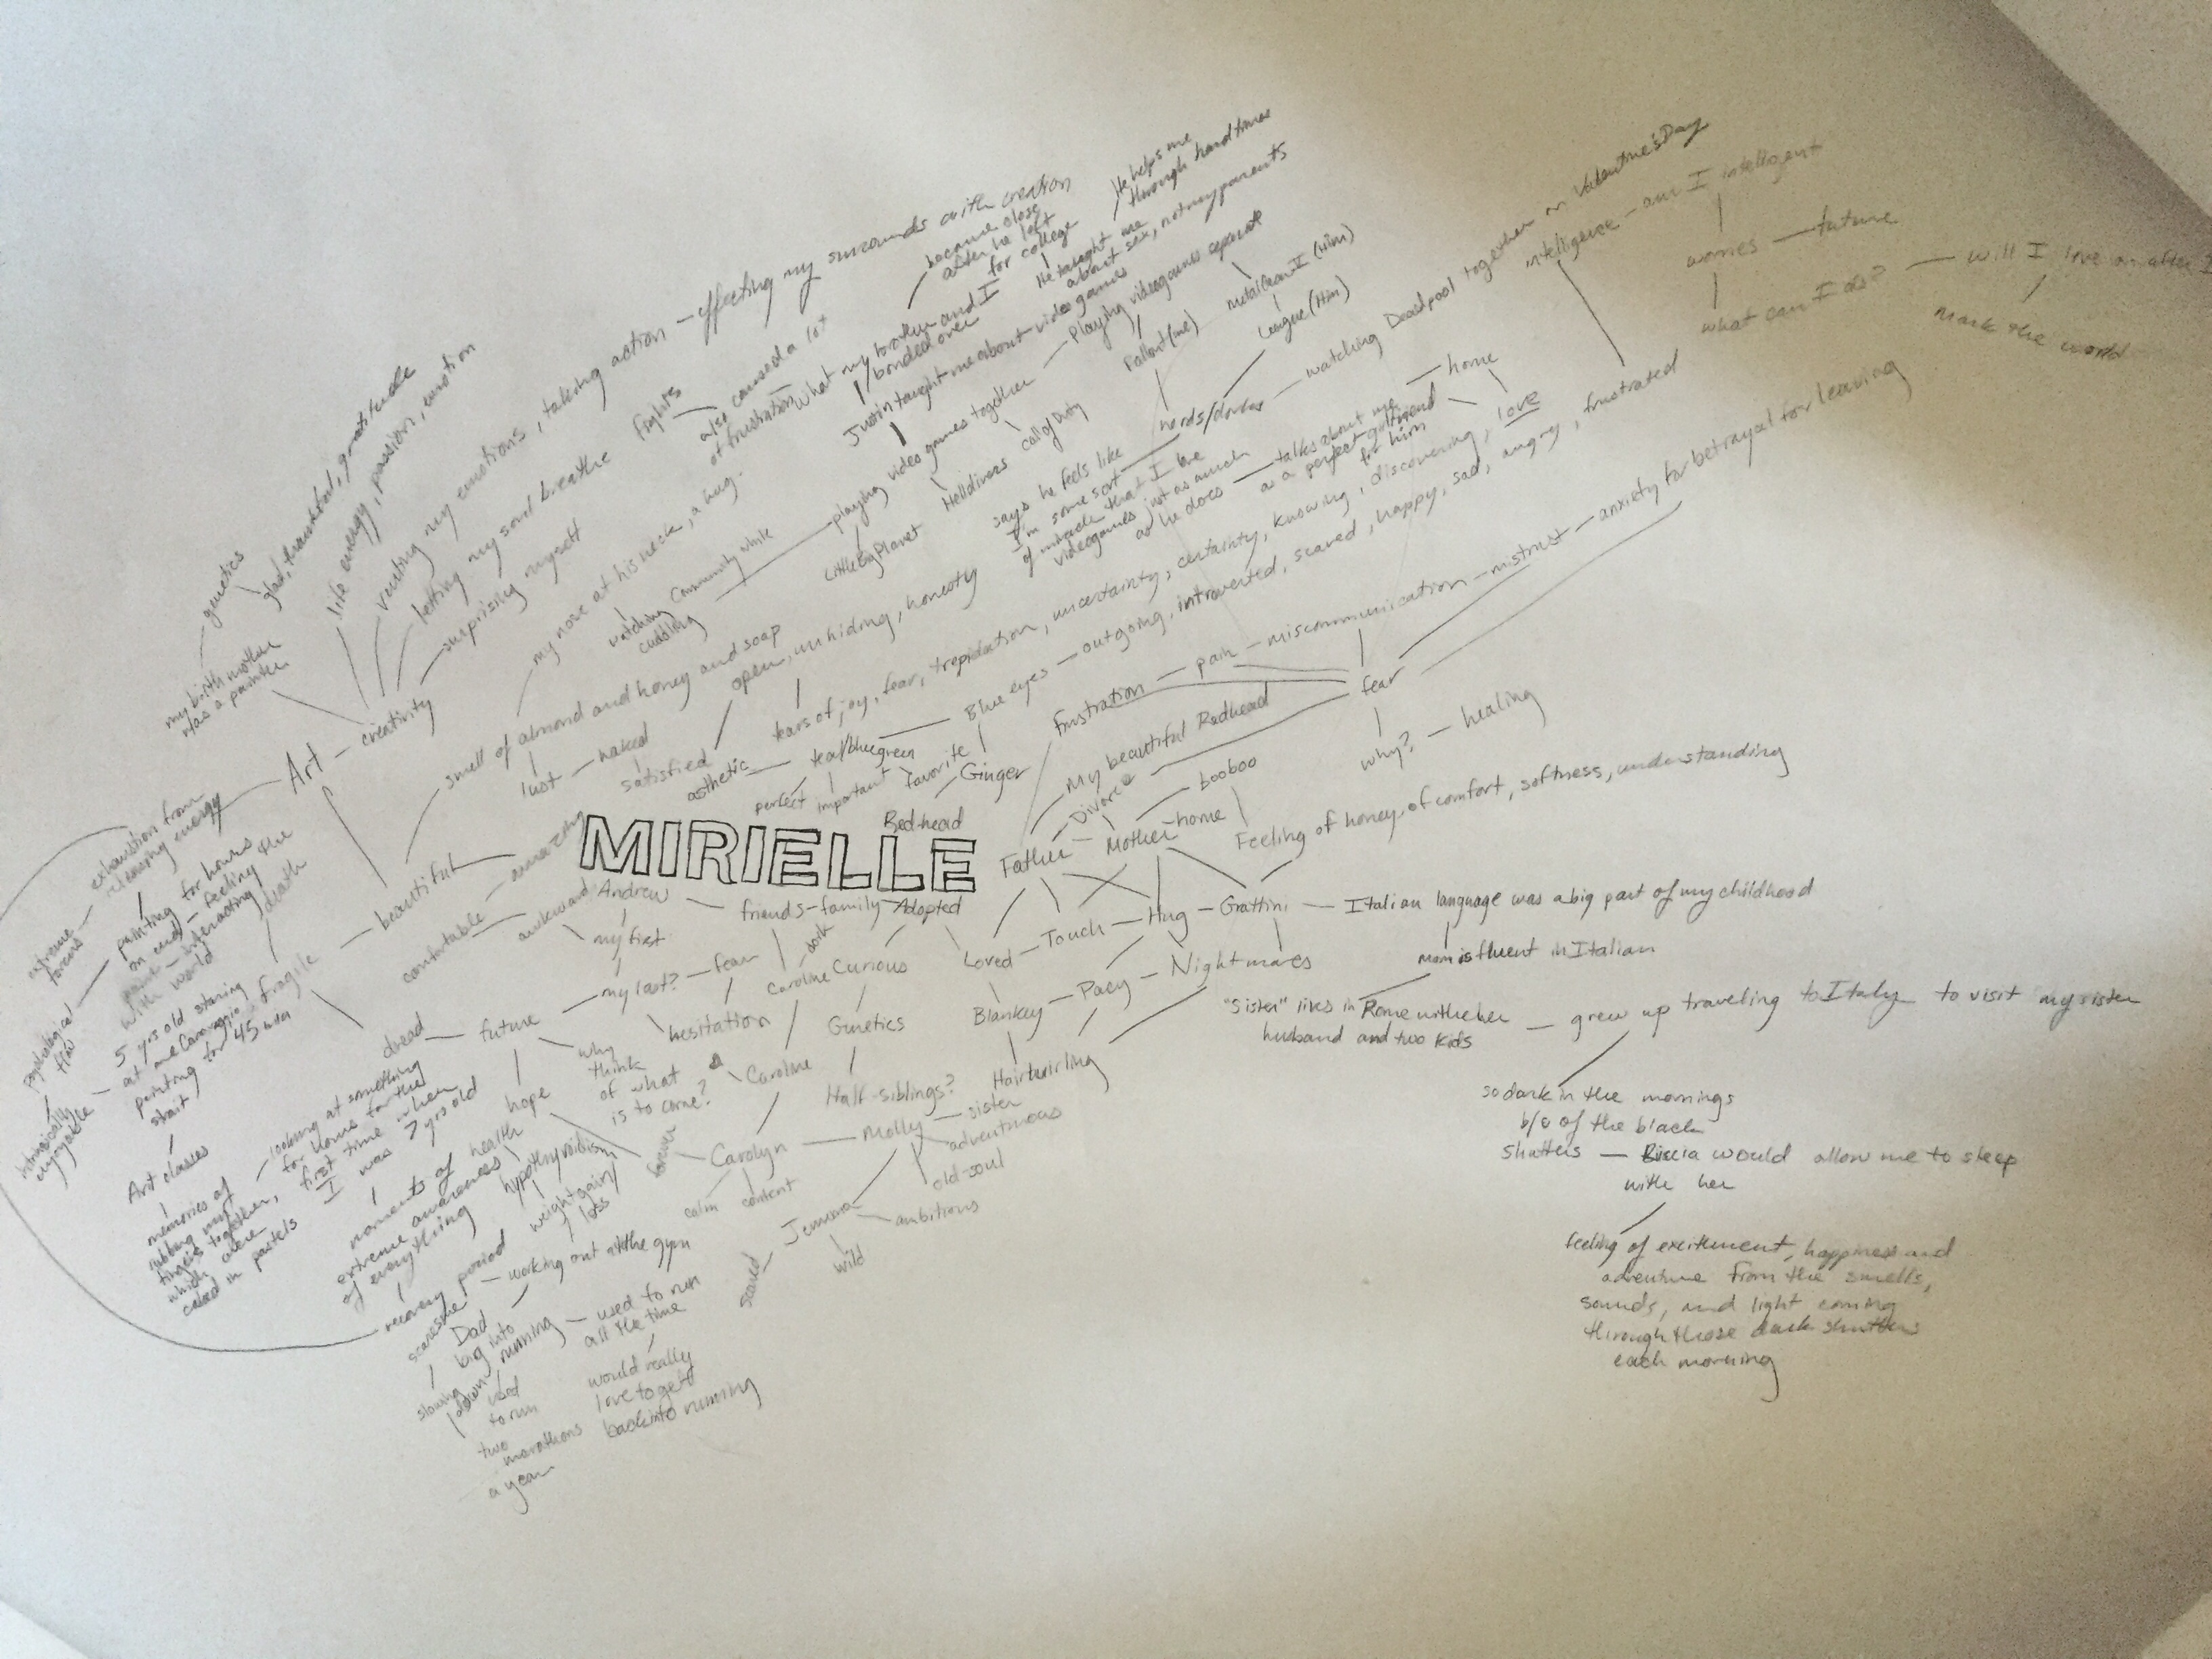 He helps me
through hard times
became close
after he left
for college
He taught me
about sex, not my parents
what my brother and I
bonded over
Justin taught me about video games
fights
also caused a lot
of frustration
venting my emotions, taking action - effecting my surrounds with creation
letting my soul breathe
surprising myself
life energy, passion, emotion
glad, thankful, gratitude
genetics
my birth mother
was a painter
creativity
Art
playing videogames separate
Fallout (me)
League (Him)
playing video games together
Call of Duty
Helldivers
Little Big Planet
nerds/dorks
watching Deadpool together on Valentine's Day
says he feels like
I'm some sort
of miracle that I love
videogames just as much
as he does
talks about me
as a perfect girlfriend
for him
home
love
intelligence - am I intelligent
worries - future
what can I do?
will I love on after
Mark the world
my nose at his neck, a hug.
watching Community while
cuddling
smell of almond and honey and soap
lust - naked
satisfied
open, unhiding, honestly
tears of joy, fear, trepidation, uncertainty, certainty, knowing, discovering, love
Blue eyes - outgoing, introverted, scared, happy, sad, angry, frustrated
asthetic
teal/bluegreen
perfect
important
favorite
Ginger
Red-head
frustration - pain - miscommunication - mistrust - anxiety for betrayal for leaving
fear
why? - healing
My beautiful Redhead
Divorce
booboo
Father
Mother
home
Feeling of honey, of comfort, softness, understanding
MIRIELLE
beautiful
comfortable - amazing
awkward
Andrew
friends - family - Adopted
my first
my last? - fear
hesitation
dork
Caroline
Curious
Loved - Touch - Hug - Grattini - Italian language was a big part of my childhood
Mom is fluent in Italian
"Sister" lives in Rome with her
husband and two kids
grew up traveling to Italy to visit my sister
so dark in the mornings
b/c of the black
shutters - would allow me to sleep
with her
feeling of excitement, happiness and
adventure from the smells,
sounds, and light coming
through those dark shutters
each morning
Blankey - Pacy - Nightmares
Hairtwirling
Genetics
Half-siblings?
Caroline
Carolyn
forever
calm
content
Molly - sister
adventurous
old-soul
Jemma
ambitious
wild
scared
fragile
death
dread - future
why
think
of what
is to come?
hope
health
hypothyroidism
weight gain/
loss
working out at the gym
Dad
big into
running
used to run
all the time
would really
love to get
back into running
used
to run
two
marathons
a year
moments of
extreme awareness
of everything
recovery period
slowing
down
exhaustion from
releasing energy
painting for hours
on end - feeling the
paint - interacting
with world
extreme
focus
psychological
flow
intrinsically
enjoyable
5 yrs old staring
at one Caravaggio
painting for 45 min
strait
Art classes
memories of
rubbing my
fingers together,
which were
caked in pastels
looking at something
for hours for the
first time when
I was 7 years old